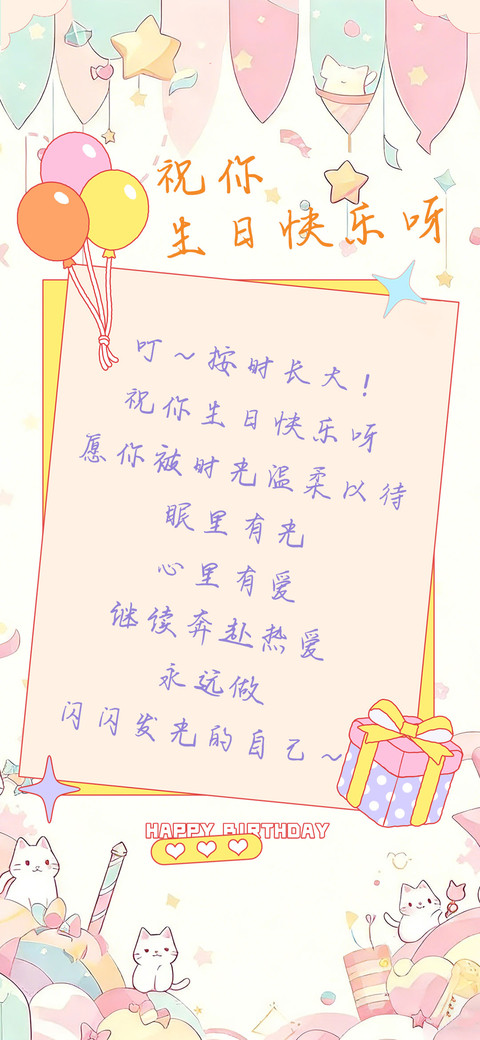 祝你
生日快乐呀
叮~按时长大!
祝你生日快乐呀
愿你被时光温柔以待
眼里有光
心里有爱
继续奔赴热爱
永远做
闪闪发光的自己~
HAPPY BIRTHDAY